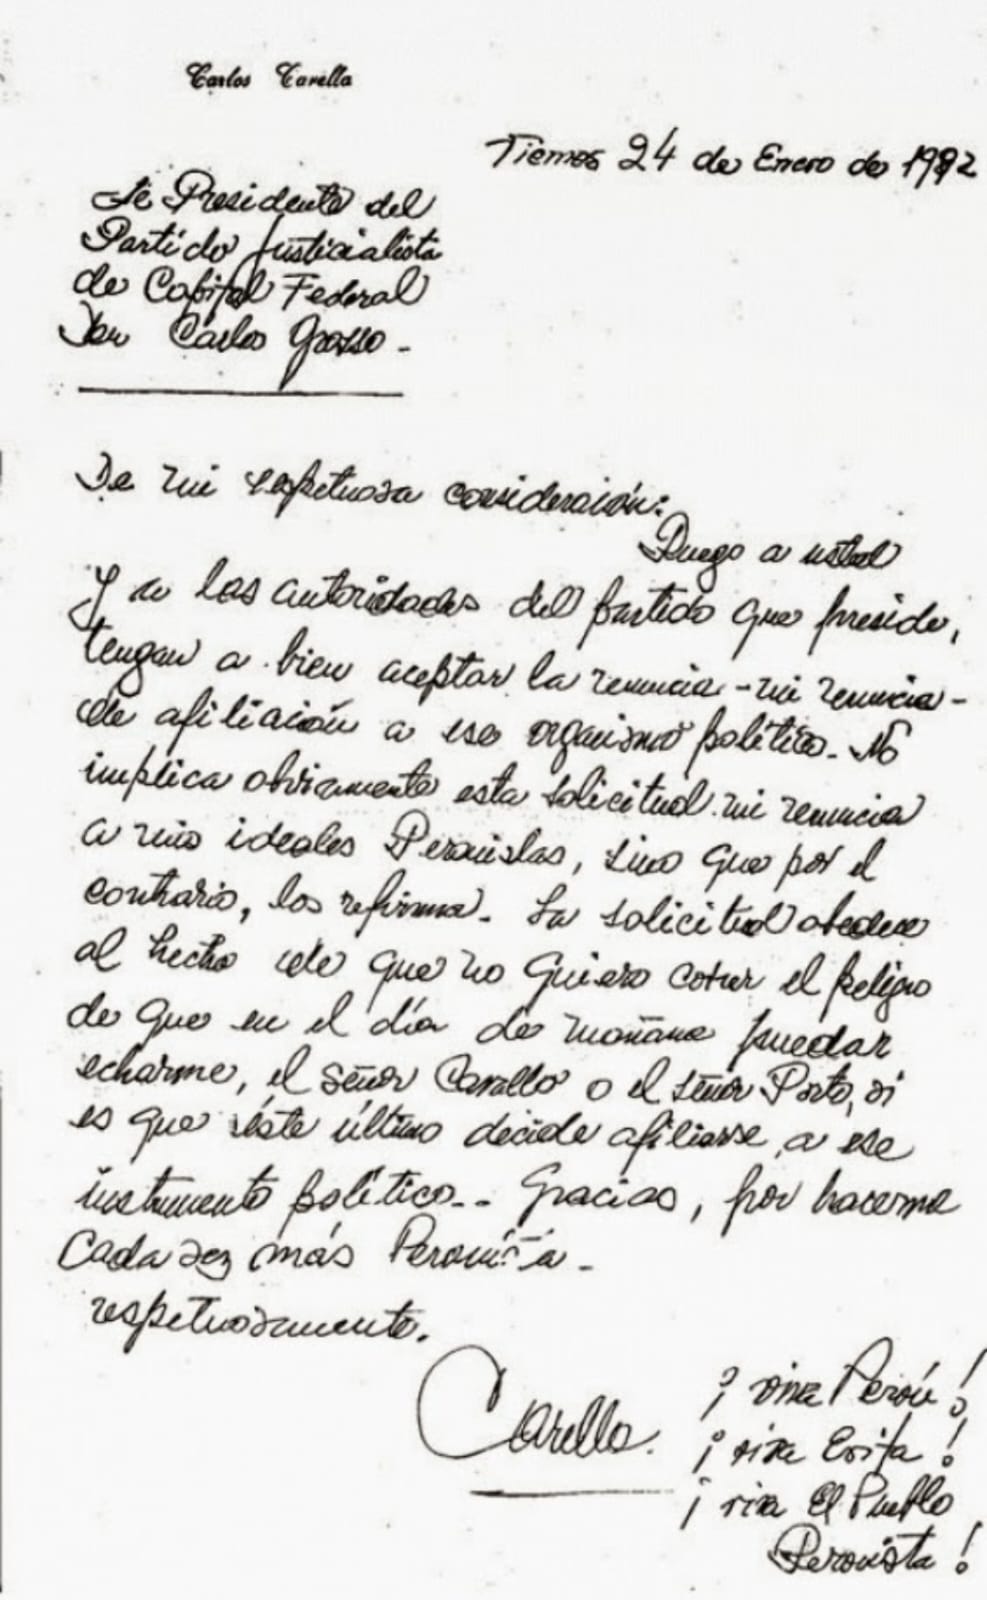 Carlos Carella
Viernes 24 de Enero de 1992
Sr Presidente del
Partido Justicialista
de Capital Federal
Don Carlos Grosso -
De mi respetuosa consideración:
Ruego a usted
y a las autoridades del partido que preside,
tengan a bien aceptar la renuncia - mi renuncia -
de afiliación a ese organismo político. No
implica obviamente esta solicitud mi renuncia
a mis ideales Peronistas, sino que por el
contrario, los reafirma. La solicitud obedece
al hecho de que no quiero correr el peligro
de que en el día de mañana puedan
echarme, el señor Cavallo o el señor Porto, si
es que éste último decide afiliarse, a ese
instrumento político.. Gracias, por hacerme
Cada vez más Peronista -
respetuosamente.
Carella.
¡ viva Perón !
¡ viva Evita !
¡ viva El Pueblo
Peronista !